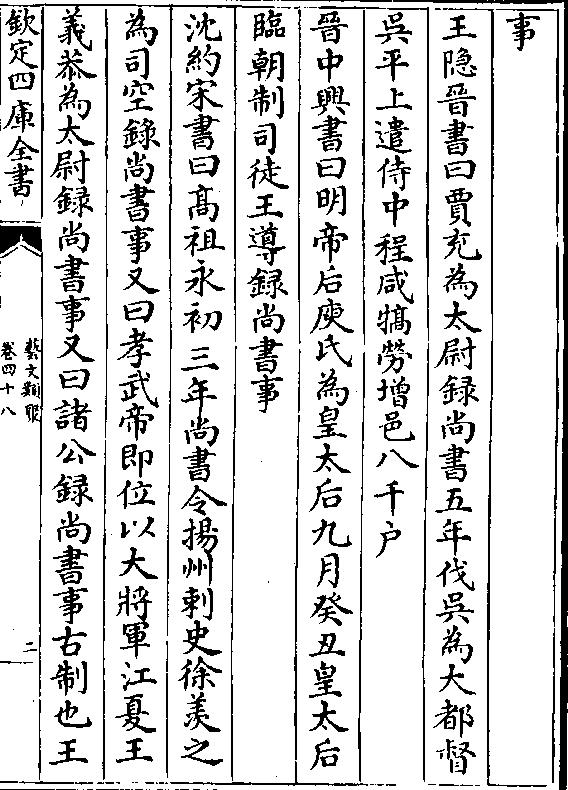 事
王隐晉書曰賈充為太尉録尚書五年伐吳為大都督
吳平上遣侍中程咸犒勞增邑八千户
晉中興書曰明帝后庾氏為皇太后九月癸丑皇太后
臨朝制司徒王導録尚書事
沈約宋書曰髙祖永初三年尚書令揚州刺史徐羡之
為司空錄尚書事又曰孝武帝即位以大將軍江夏王
義恭為太尉録尚書事又曰諸公録尚書事古制也王
欽定四庫全書
藝文類聚
卷四十八
二